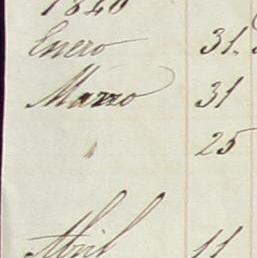 1840
Enero 31.
Marzo 31
" 25
Abril 11